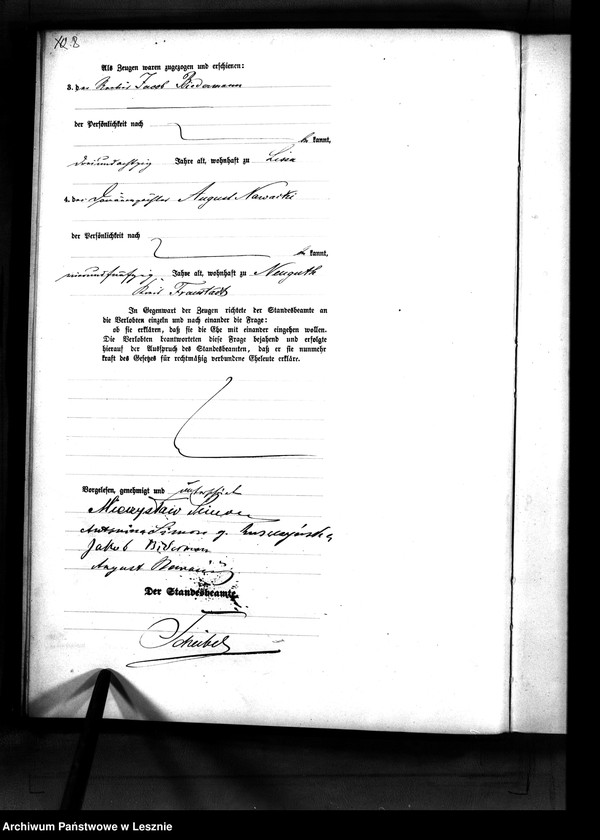 Als Zeugen waren zugezogen und erschienen:
3. der Jacob Biedermann
der Persönlichkeit nach
be kannt,
dreiundachtzig Jahre alt, wohnhaft zu Lissa
4. der August Nawacki
der Persönlichkeit nach
be kannt,
vierundfünfzig Jahre alt, wohnhaft zu Neuguth
Kreis Fraustadt
In Gegenwart der Zeugen richtete der Standesbeamte an
die Verlobten einzeln und nach einander die Frage:
ob sie erklären, daß sie die Ehe mit einander eingehen wollen.
Die Verlobten beantworteten diese Frage bejahend und erfolgte
hierauf der Ausspruch des Standesbeamten, daß er sie nunmehr
kraft des Gesetzes für rechtmäßig verbundene Eheleute erkläre.
Vorgelesen, genehmigt und
Mieczysław Simon
Antonina Simon g.
Jakob Biderman
August
Der Standesbeamte.
Scheibel
Archiwum Państwowe w Lesznie